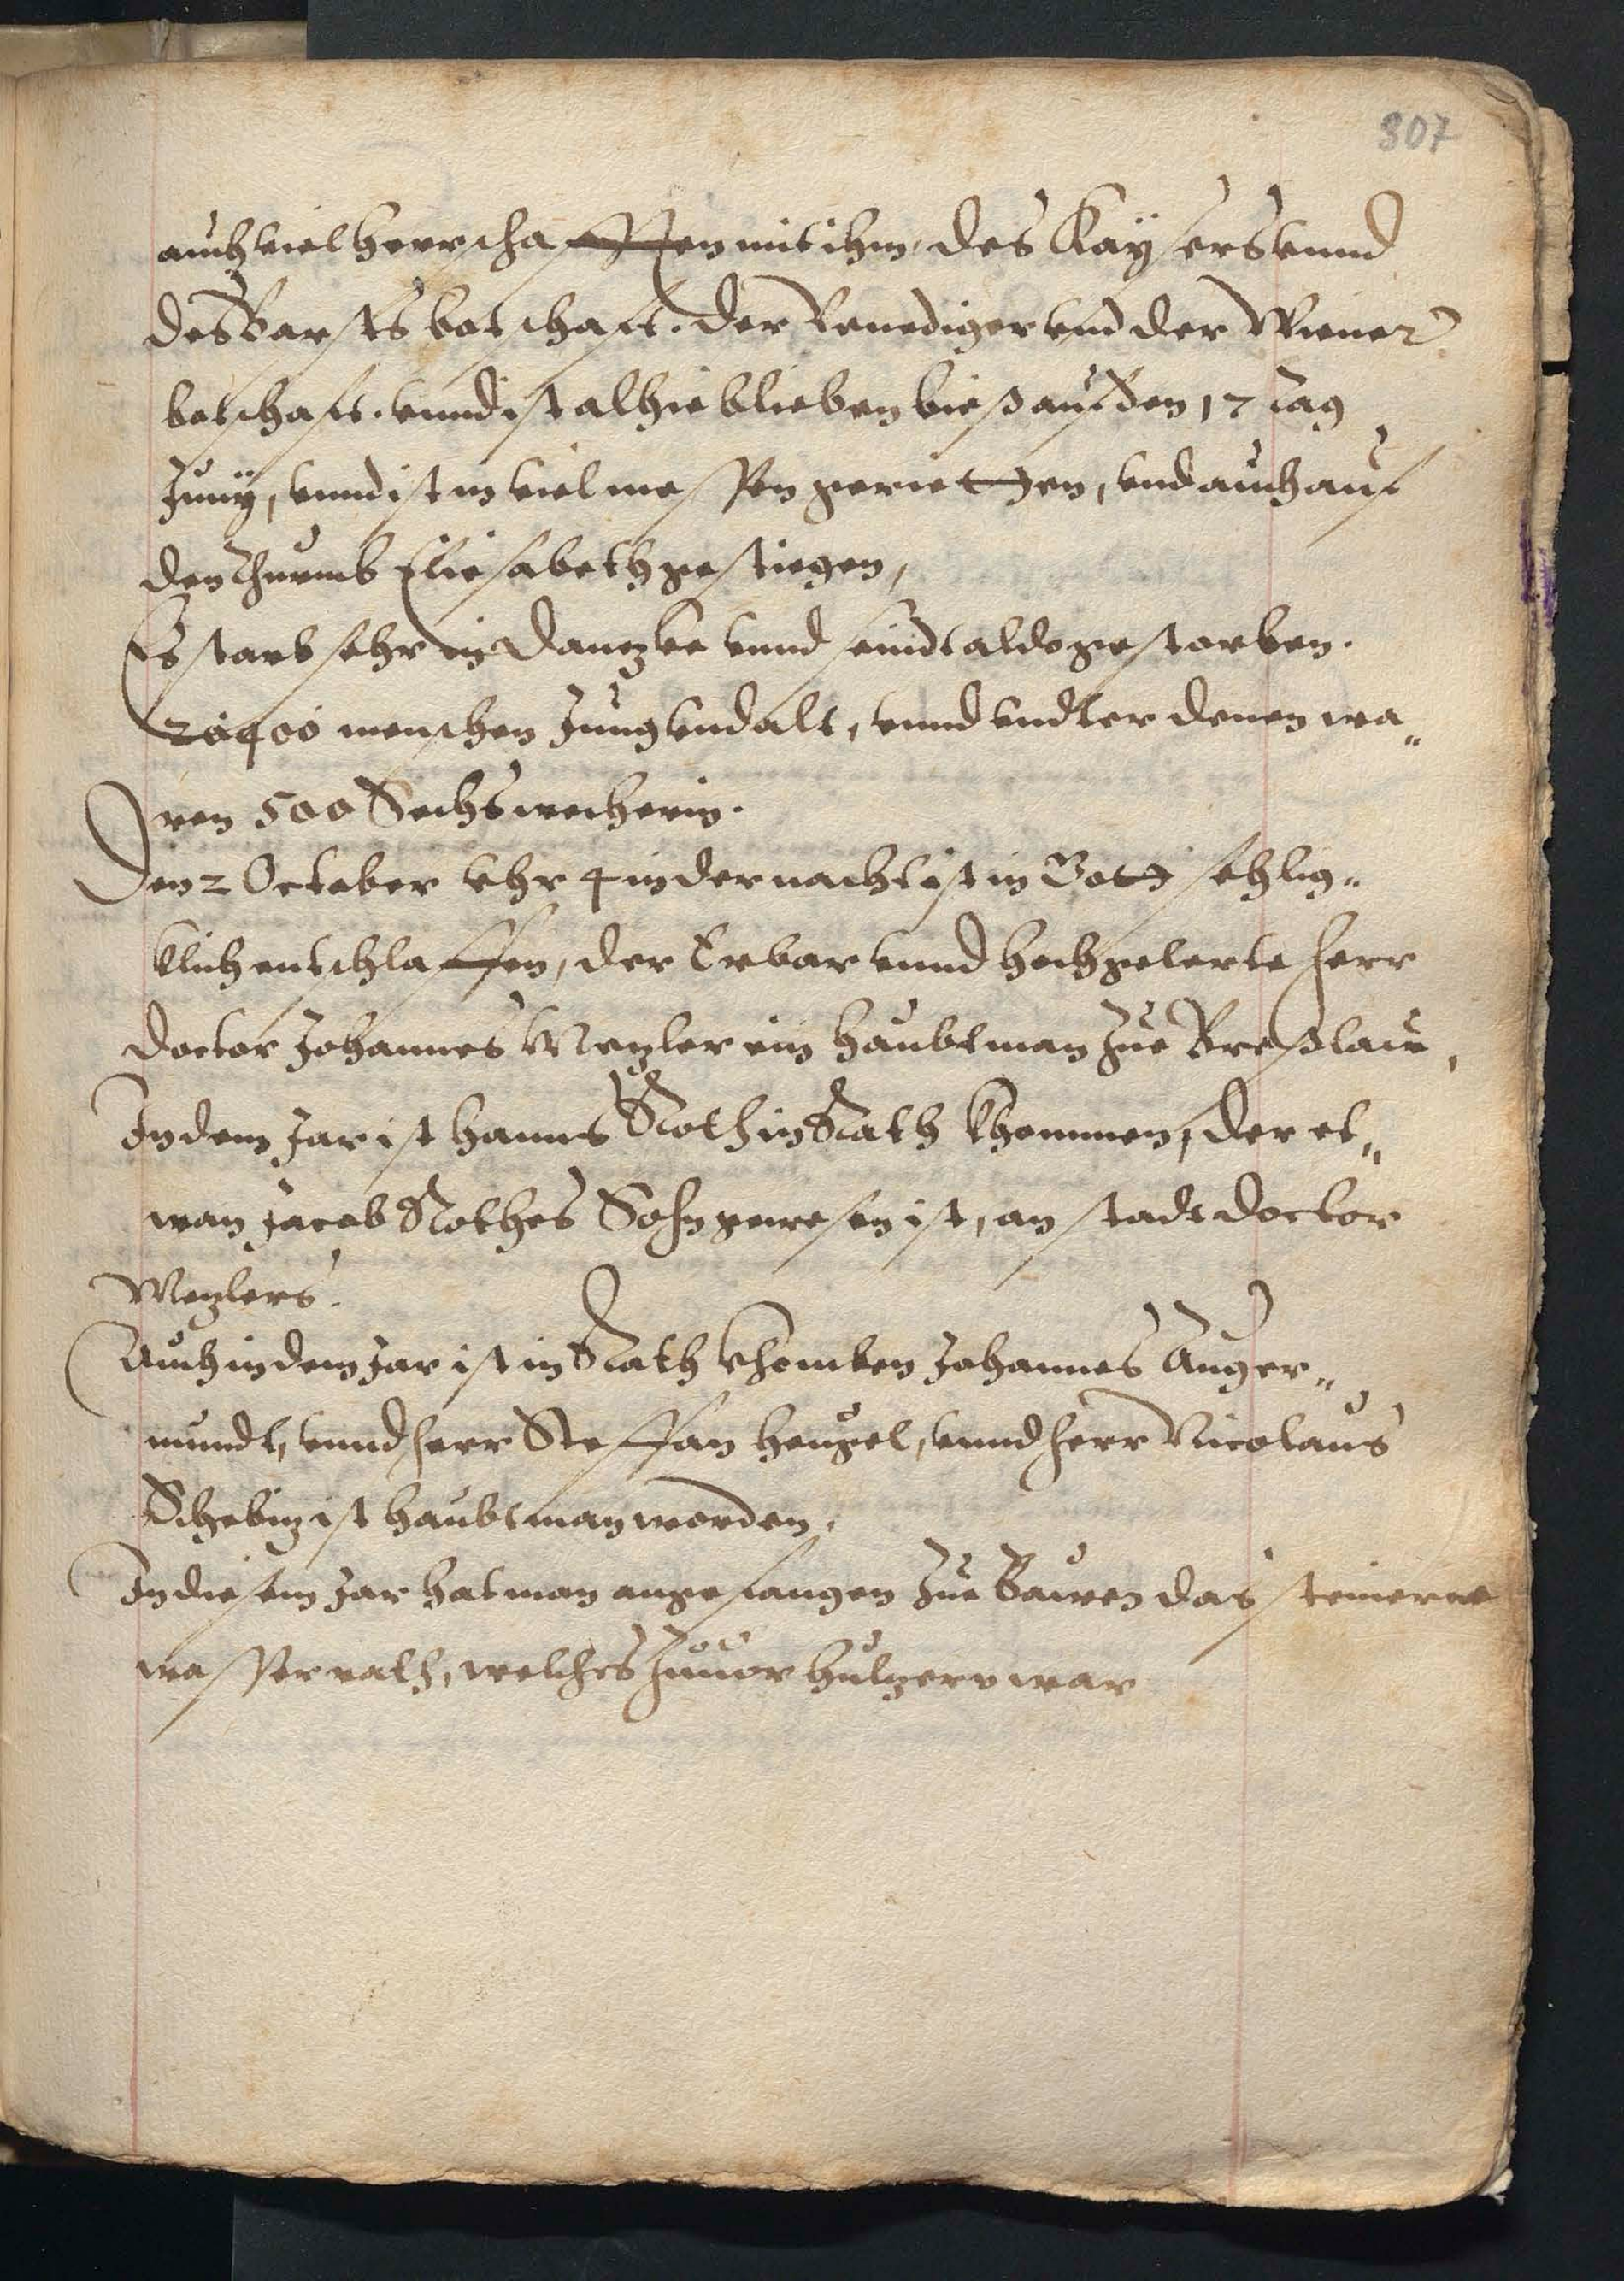 307
auch viel herrschafften mit ihm, des Kaysers vnnd
des Barsts botschaft. der Venediger vnd der Wiener
botschaft. vnnd ist alhie blieben bieß auf den 17 tag
Junÿ, vnnd ist in viel messen geriethen, vnd auch auf
den thurmb Eliesabeth gestiegen,
Es starb sehr in Dantzke vnnd seindt aldo gestorben.
20400 menschen Jung vnd alt, vnnd vndter denen wa„
ren 500 Sechswecherin.
Den 2 October vhr 4 in der nacht ist in Gott sehlig„
klich entschlaffen, der Erbar vnnd hochgelerte herr
doctor Johannes Metzler ein haubtman zue Breßlaw,
In dem Jar ist hanns Roth in Rath khommen, der et„
wan Jacob Rothes Sohn gewesen ist, an stadt doctor
Metzlers.
Auch in dem Jar ist in Rath khomben Johannes Anger„
mundt, vnnd herr Steffan heugel, vnnd herr Nicolaus
Schebitz ist haubtman worden.
In diesem Jar hat man angefangen zue Bawen das steinerne
wasserrath, welches zuuor hultzern war